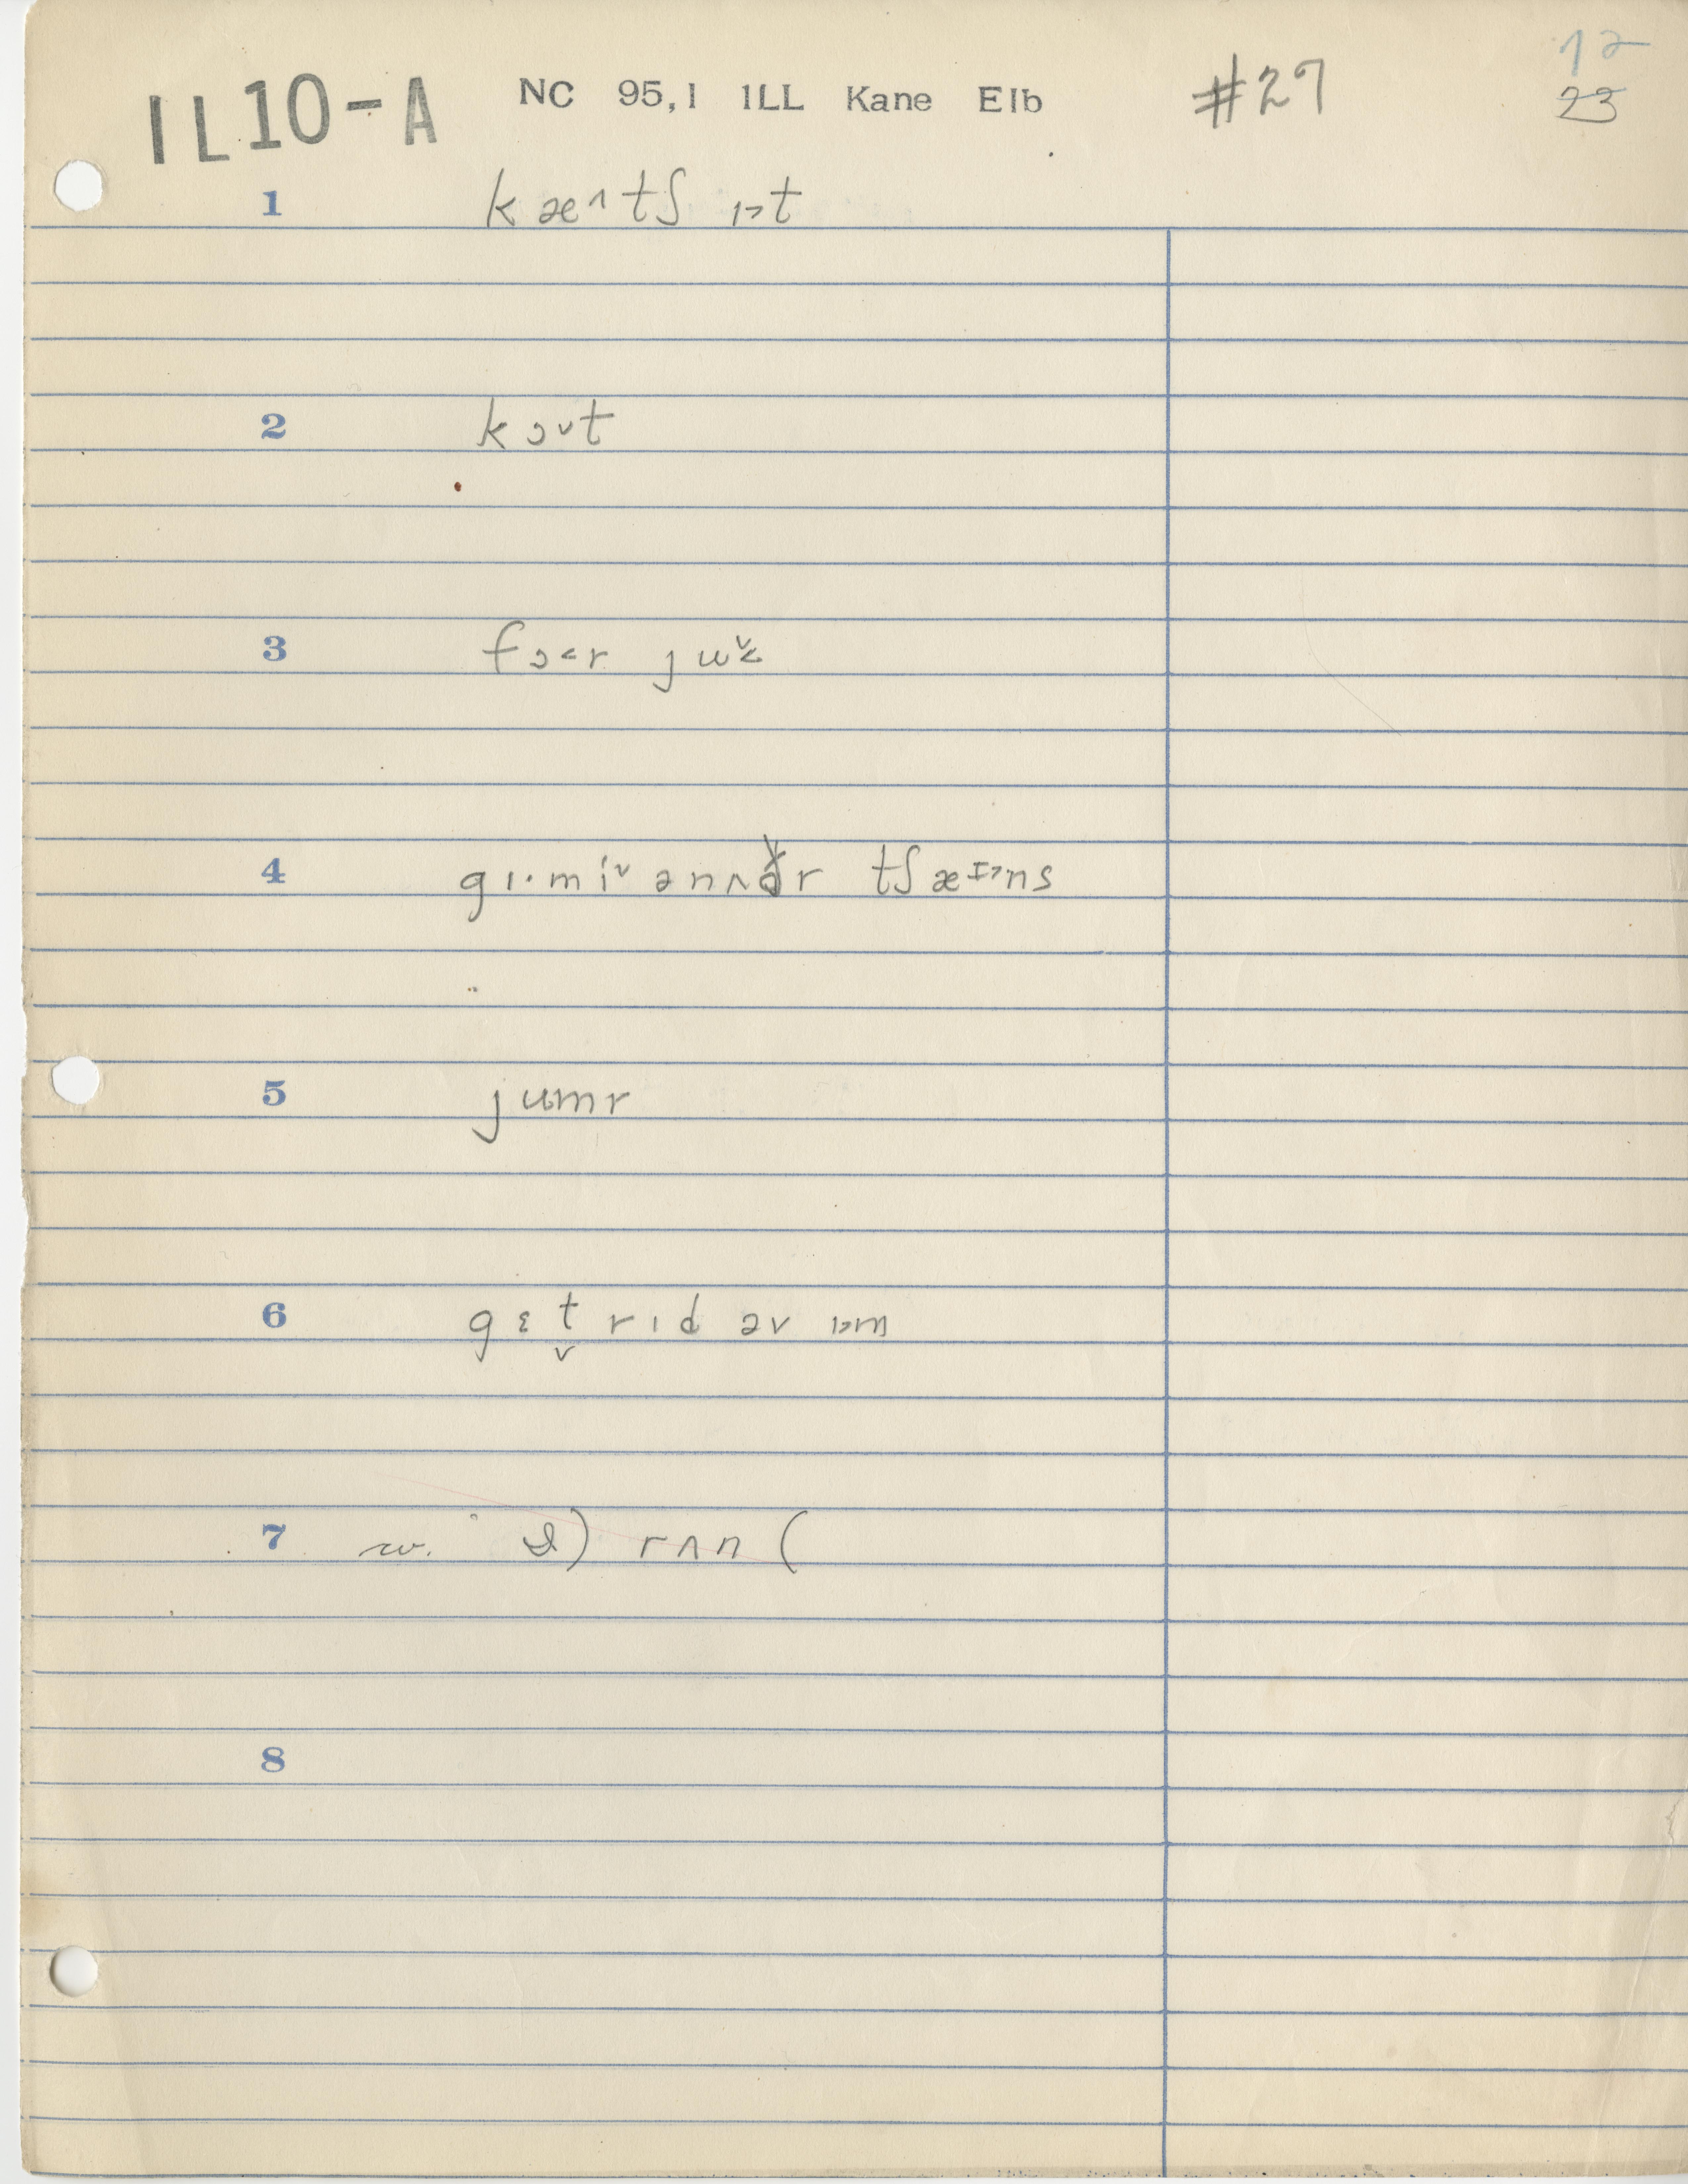 IL10-A NC 95,1 ILL Kane Elb #27 12
23
1 kæ˄tʃ ɪ˃t
2 kɔ˅t
3 fɔ˂r jʉ
4 gɪ·mi˅ ənʌðr tʃæɪ˃ns
5 jumr
6 gɛt̬ rɪd əv ɪ˃m
7 w. ) rʌn (
8